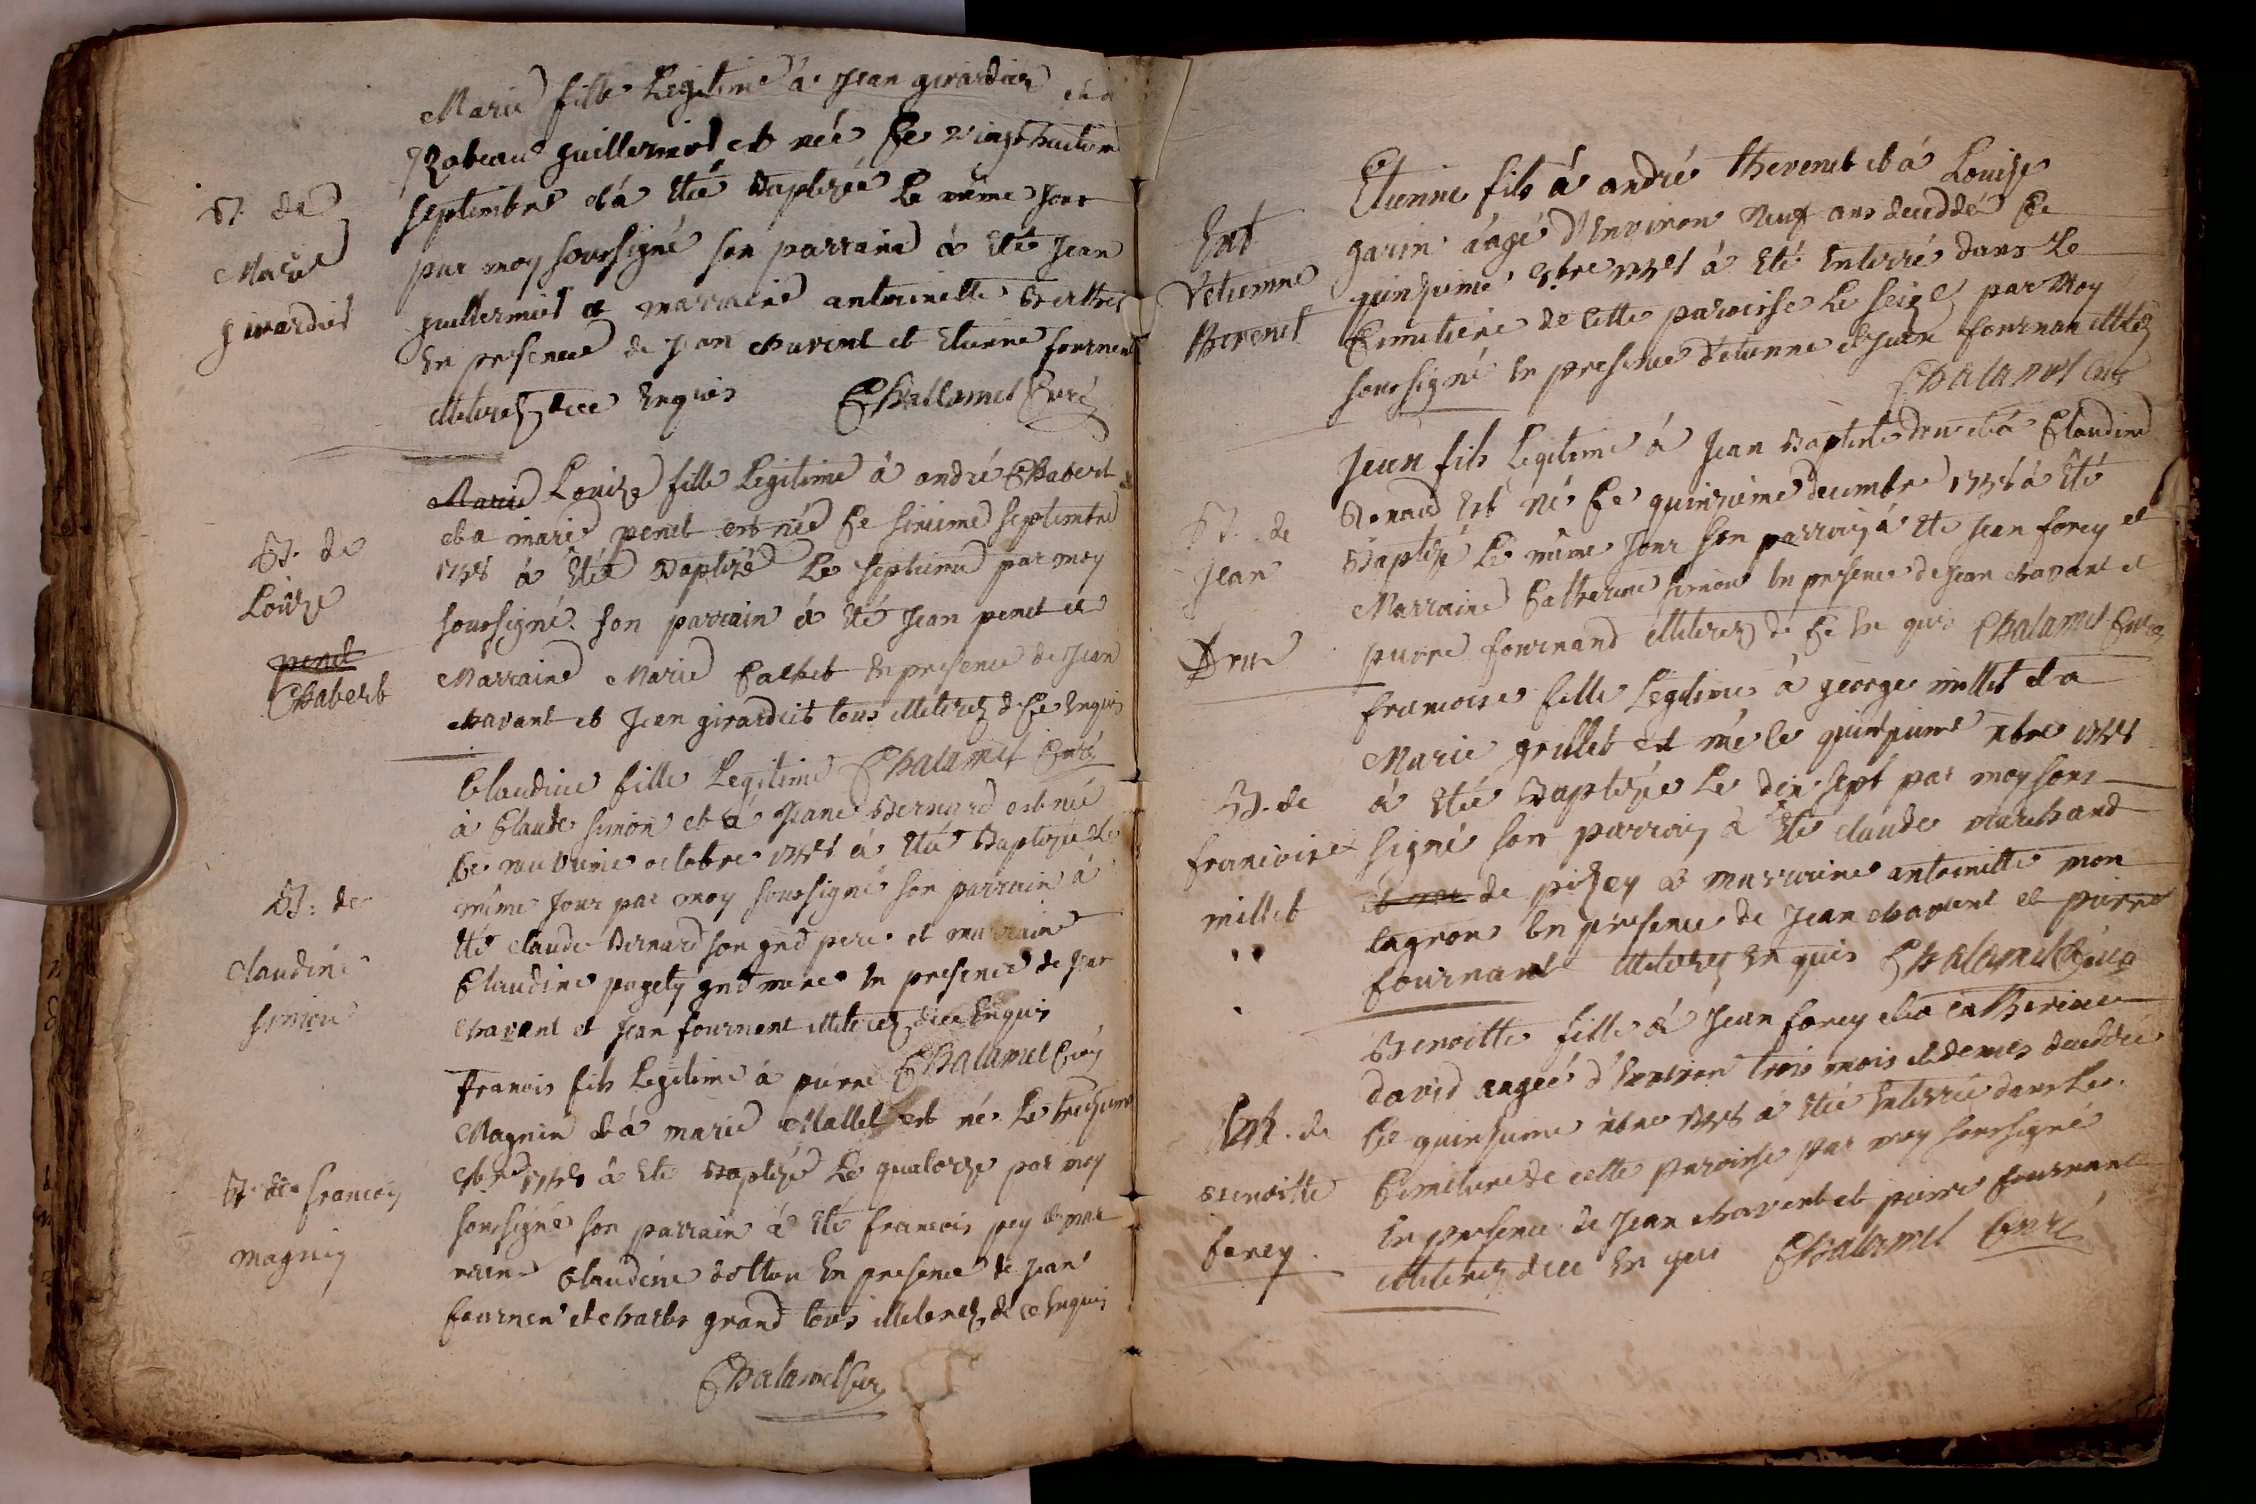 Marie fille Legitime à Jean girardier et a
Izabeau guillermet est née Le vingt huitiem
septembre et à été Baptizée Le même Jour
B. de
par moy soussigné son parrain à été Jean
Marie
guillermet et marraine antoinette
girardiet
En presence de Jean chavent et Etienne fournen
illiterez de ce Enquis Challamel Curé
Marie Louize fille Legitime à andré Chabert
et a marie penet est née Le sixieme septembre
B. de
à été Baptizée Le septieme par moy
Louize
soussigné son parrain à été Jean penet et
penet
Marraine Marie En presence de Jean
Chabert
chavant et Jean girardiet tous illiterez de Ce Enquis
Claudine fille Legitime Chalamel Curé
à Claude simon et à Jeane Bernard est née
Le neuvieme octobre à été Baptizée Le
même Jour par moy soussigné son parrain à
B. de
été claude Bernard son gnd pere et marraine
claudine
Claudine pagety gnd mere En presence de Jean
simon
chavant et Jean fournent illiterez de ce Enquis
Francois fils Legitime à pierre Chalamel Curé
Magnin et à marie Mallet est né Le treizieme
à été Baptizé Le quatorze par moy
B. de francois
soussigné son parrain à été francois pey et mar
magnin
raine Claudine En presence de Jean
fournen et charles grand tous illiterez de ce Enquis
Chalamel Curé
Etienne fils à andré thevenet et à Louise
Ent
garin âagé d'Environ neuf ans decedé Le
d'etienne
quinzieme à été Enterré dans Le
thevenet
Cimetiere de Cette paroisse Le seize par Moy
soussigné En presence d'etienne et Jean fournan illiterez
Chalamel Curé
Jean fils Legitime à Jean Baptiste dru et à Claudine
Renaud Est né Le quinzieme decembre à été
B. de
Baptizé Le même Jour son parrain à été Jean forey et
Jean
Marraine Catherine simon En presence de Jean chavant et
Dru
pierre fournand illiterez de Ce En quis Chalamel Curé
francoise fille Legitime à george millet et a
Marie grillet est née le quinzieme xbre
B. de
à été Baptizée Le dix sept par moy sous
francoise
signé son parrain à été claude marchand
millet
de pizey et marraine antoinette mon
lagron En presence de Jean chavent et pierre
fournant illiterez En quis Chalamel Curé
Benoitte fille à Jean forey et a catherine
david aagée d'Environ trois mois et demis decedée
Ent. de
Le quinzieme xbre à été Enterrée dans Le
Benoitte
Cimetiere de cette paroisse par moy soussigné
forey
En presence de Jean chavent et pierre fournant
illiterez de ce En quis Chalamel Curé